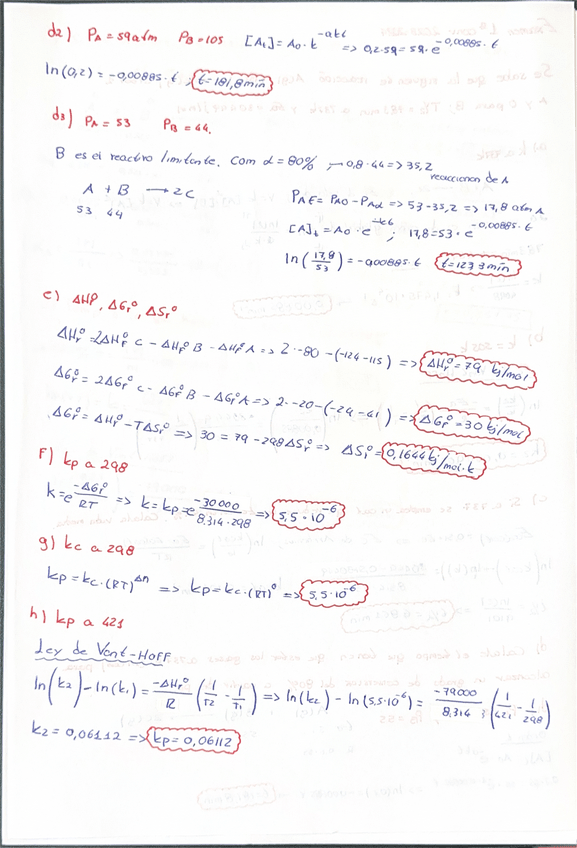 d2) PA = 59atm PB = 105 [At] = A0 · t^-akt => 0,2·59 = 59·e^-0,00885·t
ln(0,2) = -0,00885·t; t = 181,8min
d3) PA = 53 PB = 44.
B es el reactivo limitante. Com α = 80% → 0,8·44 => 35,2
reaccionan de A
A + B → 2C
53 44
PAt = PA0 - PAα => 53-35,2 => 17,8 atm A
[A]t = A0·e^-akt; 17,8 = 53·e^-0,00885·t
ln(17,8/53) = -0,00885·t t = 123,3min
e) ΔHrº, ΔGrº, ΔSrº
ΔHrº = 2ΔHfº C - ΔHfº B - ΔHfº A => 2·-80 - (-124-115) => ΔHrº = 79 kj/mol
ΔGrº = 2ΔGfº C - ΔGfº B - ΔGfº A => 2·-20-(-29-41) => ΔGrº = 30 kj/mol
ΔGrº = ΔHrº - TΔSrº => 30 = 79 - 298ΔSrº => ΔSrº = 0,1644 kj/mol·k
F) kp a 298
k = e^-ΔGrº/RT => k = kp = e^-30000/8,314·298 => 5,5·10^-6
g) kc a 298
kp = kc·(RT)^Δn => kp = kc·(RT)^0 => 5,5·10^-6
h) kp a 421
Ley de Vant-Hoff
ln(k2) - ln(k1) = -ΔHrº/R (1/T2 - 1/T1) => ln(k2) - ln(5,5·10^-6) = -79000/8,314 ; (1/421 - 1/298)
k2 = 0,06112 => kp = 0,06112